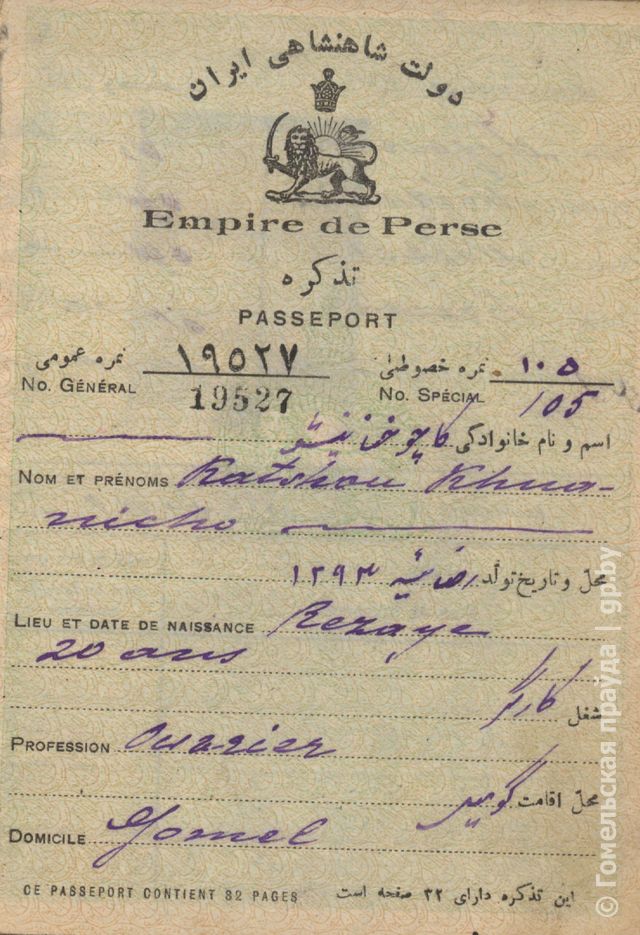 دولت شاهنشاهی ایران
Empire de Perse
تذکره
PASSEPORT
نمره عمومی ۱۹۵۲۷
No. GÉNÉRAL 19527
نمره خصوصی ۱۰۵
No. SPÉCIAL 105
اسم و نام خانوادگی
NOM ET PRÉNOMS Katshou Khna-
nicho
محلّ و تاریخ تولّد رضائیه ۱۲۹۳
LIEU ET DATE DE NAISSANCE Rezaye
20 ans
شغل کارگر
PROFESSION Ouvrier
محلّ اقامت
DOMICILE Gomel
CE PASSEPORT CONTIENT 32 PAGES
این تذکره دارای ۳۲ صفحه است
© Гомельская правда | gp.by